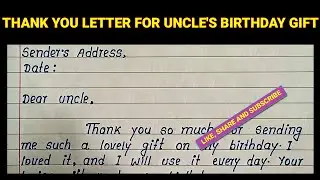 THANK YOU LETTER FOR UNCLE'S BIRTHDAY GIFT
Sender's Address.
Date:
Dear uncle,
LIKE, SHARE AND SUBSCRIBE
Thank you so much for sending
me such a lovely gift on my birthday. I
loved it, and I will use it every day. Your